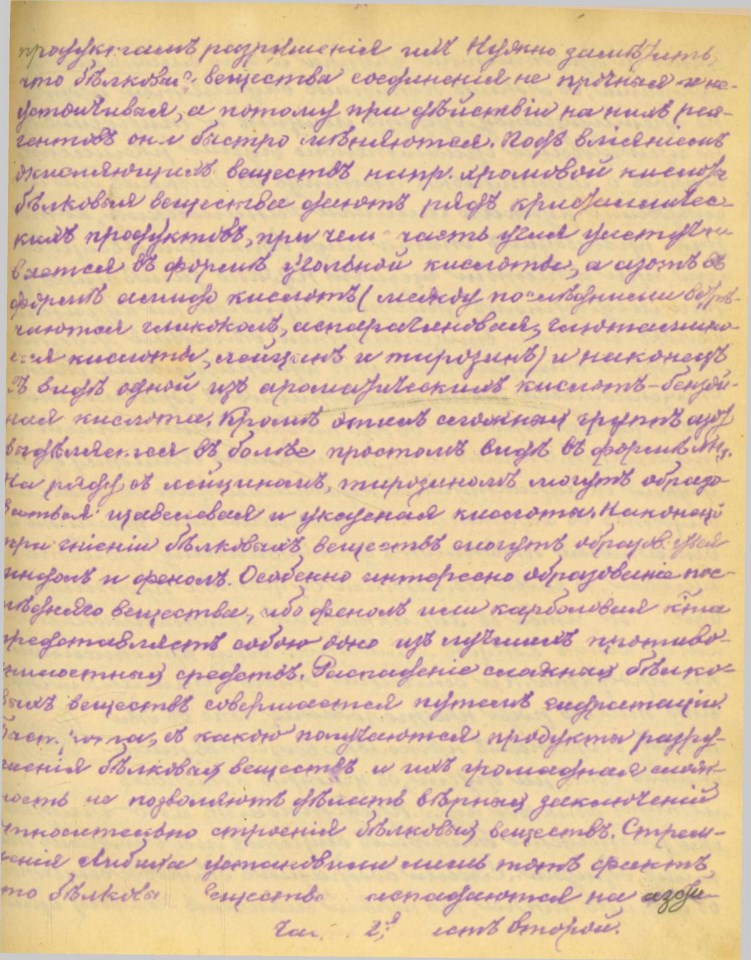 продуктамъ разрушенія ихъ Нужно замѣтить,
что бѣлковыя вещества соединенія не прочныя и не-
устойчивыя, а потому при дѣйствіи на нихъ реа-
гентовъ они быстро мѣняются. Подъ вліяніемъ
окисляющихъ веществъ напр. хромовой кислоты
бѣлковыя вещества даютъ рядъ кристалличес-
кихъ продуктовъ, при чемъ часть угля
вается въ формѣ угольной кислоты, а азотъ въ
формѣ амидо кислотъ (между послѣдними встрѣ-
чаются гликоколъ, аспарагиновая, глютамино-
вая кислоты, лейцинъ и тирозинъ) и наконецъ
въ видѣ одной изъ ароматическихъ кислотъ-бензой-
ная кислота. Кромѣ этихъ сложныхъ группъ азотъ
выдѣляется въ болѣе простомъ видѣ въ формѣ NH3.
На ряду съ лейциномъ, тирозиномъ могутъ образо-
ваться щавелевая и уксусная кислота. Наконецъ
при гніеніи бѣлковыхъ веществъ могутъ образоваться
индолъ и фенолъ. Особенно интересно образованіе пос-
лѣдняго вещества, ибо фенолъ или карболовая к̃та
представляетъ собою одно изъ лучшихъ противо-
гнилостныхъ средствъ. Распаденіе сложныхъ бѣлко-
выхъ веществъ совершается путемъ гидратаціи.
Быстрота, съ какою получаются продукты разру-
шенія бѣлковыхъ веществъ и ихъ громадная слож-
ность не позволяютъ дѣлать вѣрныхъ заключеній
относительно строенія бѣлковыхъ веществъ. Стрем-
ленія Либиха установили лишь тотъ фактъ
что бѣлковы вещества распадаются на азоти-
2,й листъ второй.